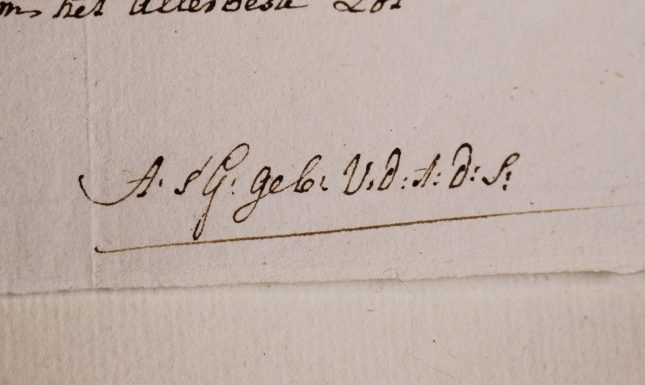 het allerbeste Lot
A. s'G: geb: V: d: A: d: S: